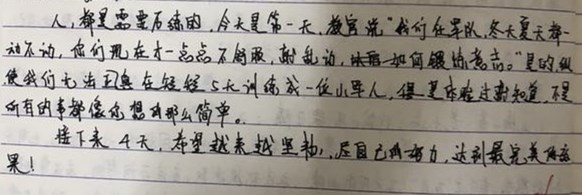 人,都是需要历练的,今天是第一天,教官说"我们在军队,冬天夏天都一
动不动,你们现在才一点点不舒服,就乱动,如何锻炼意志。"是的,纵
使我们无法在短短5天训练成一位小军人,但是体验过就知道,不是
所有的事都像你想的那么简单。
接下来4天,希望越来越坚韧,尽自己的努力,达到最完美的效
果!